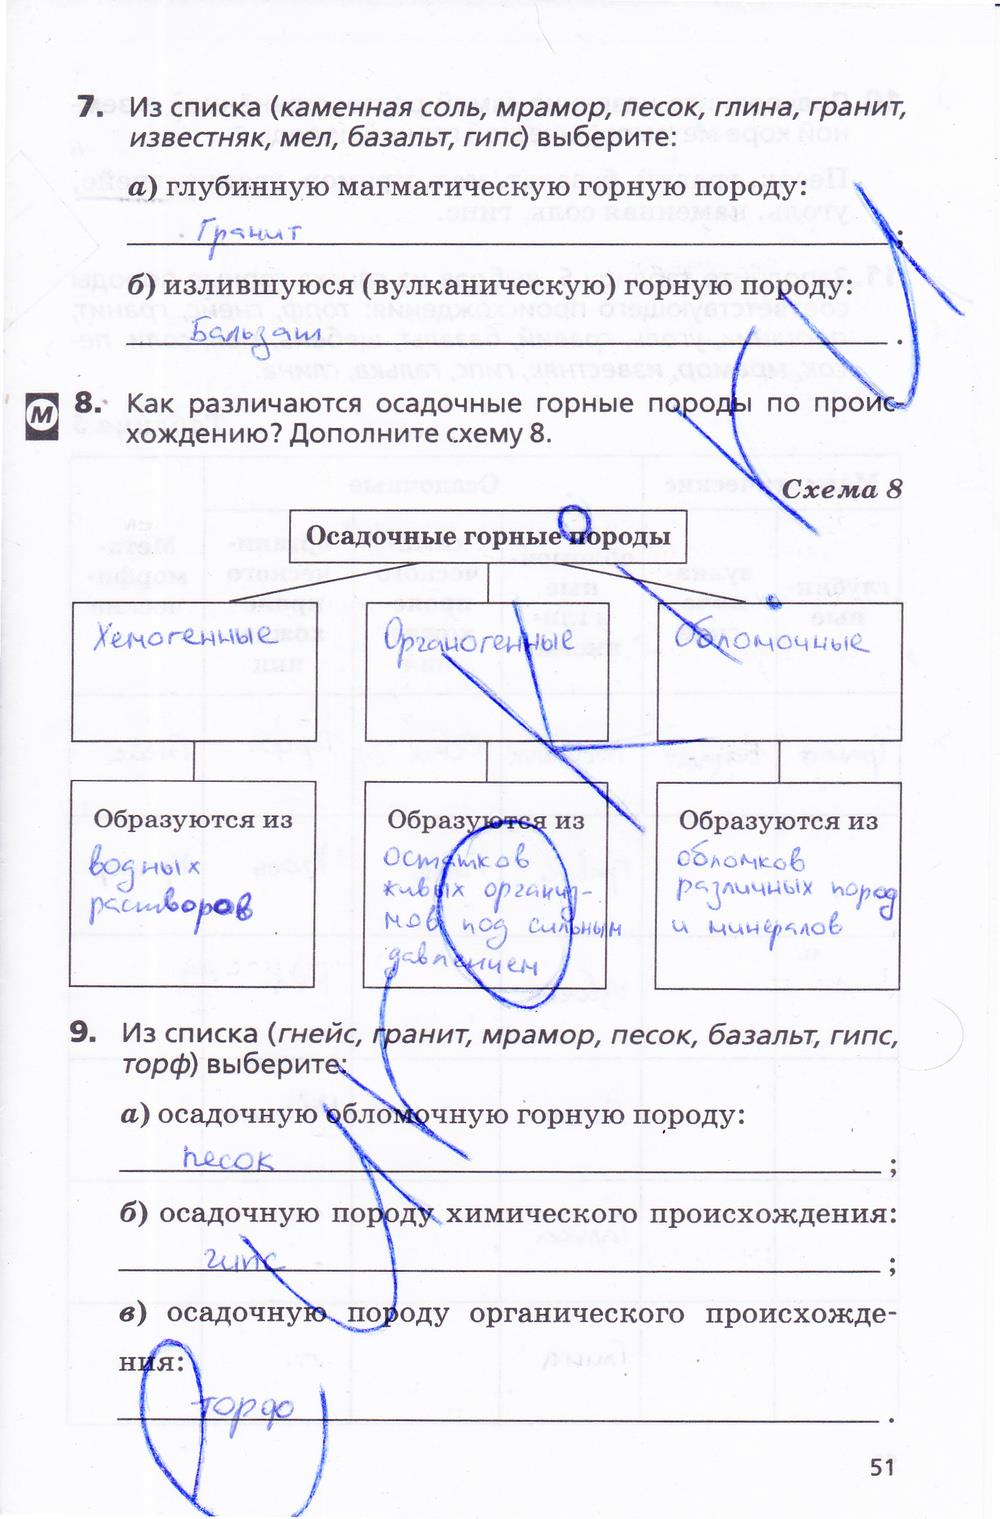 7. Из списка (каменная соль, мрамор, песок, глина, гранит,
известняк, мел, базальт, гипс) выберите:
а) глубинную магматическую горную породу:
Гранит ;
б) излившуюся (вулканическую) горную породу:
Бальзат .
М 8. Как различаются осадочные горные породы по проис-
хождению? Дополните схему 8.
Схема 8
Осадочные горные породы
Хемогенные Органогенные Обломочные
Образуются из Образуются из Образуются из
водных остатков обломков
растворов живых организ- различных пород
мов под сильным и минералов
давлением
9. Из списка (гнейс, гранит, мрамор, песок, базальт, гипс,
торф) выберите:
а) осадочную обломочную горную породу:
песок ;
б) осадочную породу химического происхождения:
гипс ;
в) осадочную породу органического происхожде-
ния:
торф .
51